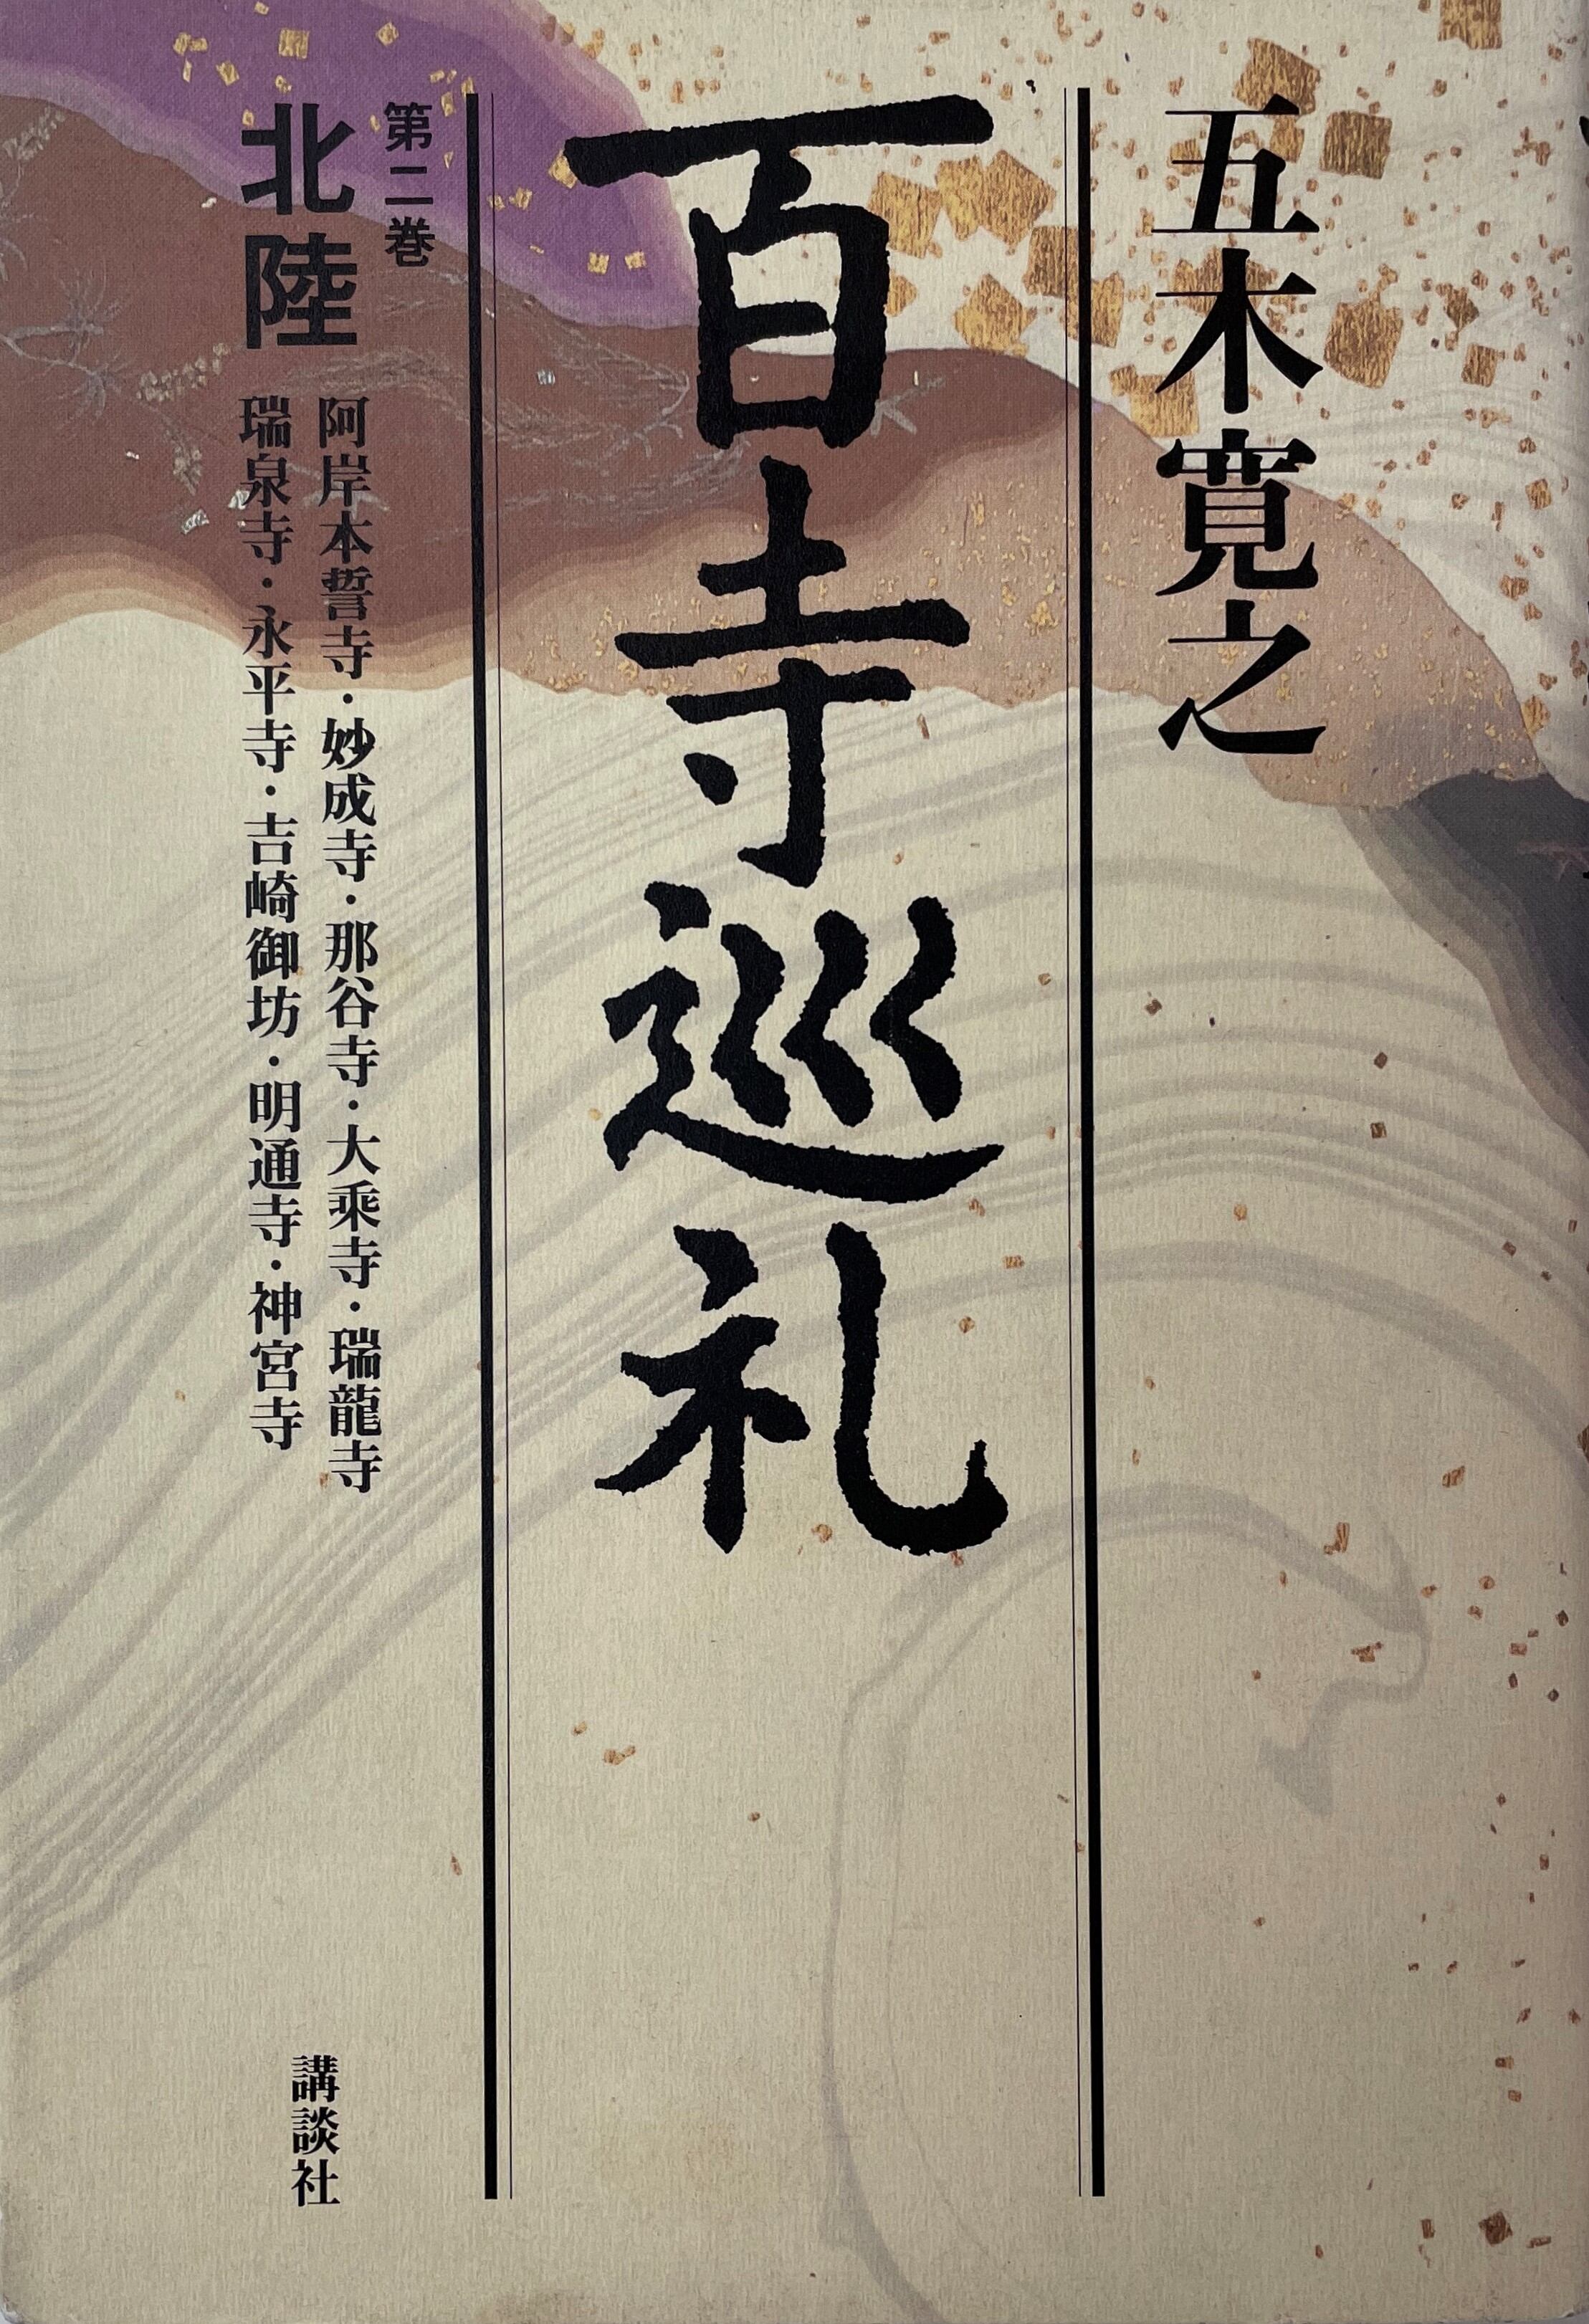 五木寛之
百寺巡礼
第二巻
北陸
阿岸本誓寺・妙成寺・那谷寺・大乗寺・瑞龍寺
瑞泉寺・永平寺・吉崎御坊・明通寺・神宮寺
講談社